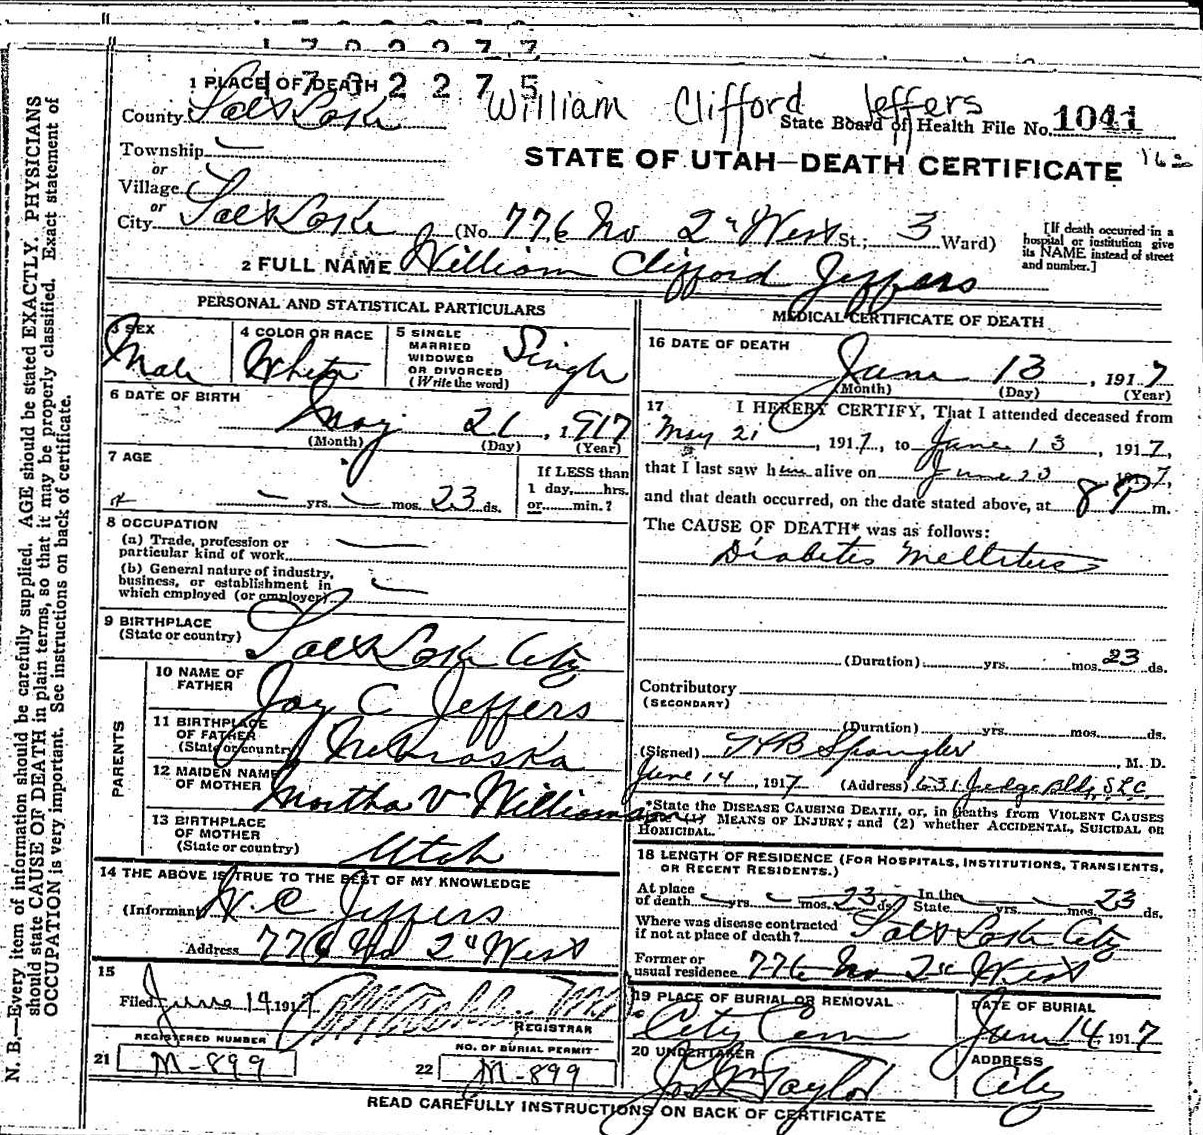 1702275
William Clifford Jeffers
1 PLACE OF DEATH
County Salt Lake
State Board of Health File No. 1041
Township —
or
Village
or
City Salt Lake
STATE OF UTAH—DEATH CERTIFICATE
(No. 776 No 2" West St.; 3 Ward)
[If death occurred in a hospital or institution give its NAME instead of street and number.]
2 FULL NAME William Clifford Jeffers
PERSONAL AND STATISTICAL PARTICULARS
3 SEX
Male
4 COLOR OR RACE
White
5 SINGLE
MARRIED
WIDOWED
OR DIVORCED
(Write the word)
Single
6 DATE OF BIRTH
May 21, 1917
(Month) (Day) (Year)
7 AGE
— yrs. — mos. 23 ds.
If LESS than
1 day, hrs.
or min.?
8 OCCUPATION
(a) Trade, profession or
particular kind of work —
(b) General nature of industry,
business, or establishment in
which employed (or employer) —
9 BIRTHPLACE
(State or country)
Salt Lake City
PARENTS
10 NAME OF
FATHER
Jay C Jeffers
11 BIRTHPLACE
OF FATHER
(State or country)
Nebraska
12 MAIDEN NAME
OF MOTHER
Martha V Williamson
13 BIRTHPLACE
OF MOTHER
(State or country)
Utah
14 THE ABOVE IS TRUE TO THE BEST OF MY KNOWLEDGE
(Informant) W. C Jeffers
Address 776 No 2" West
15
Filed June 14 1917
REGISTRAR
REGISTERED NUMBER
21 M-899
NO. OF BURIAL PERMIT
22 M-899
MEDICAL CERTIFICATE OF DEATH
16 DATE OF DEATH
June 13, 1917
(Month) (Day) (Year)
17 I HEREBY CERTIFY, That I attended deceased from
May 21, 1917, to June 13, 1917,
that I last saw him alive on June 13 1917,
and that death occurred, on the date stated above, at 8 P m.
The CAUSE OF DEATH* was as follows:
Diabetes Mellitus
(Duration) yrs. mos. 23 ds.
Contributory
(SECONDARY)
(Duration) yrs. mos. ds.
(Signed) Spangler, M. D.
June 14, 1917 (Address) 631 Judge Bldg, SLC.
*State the DISEASE CAUSING DEATH, or, in deaths from VIOLENT CAUSES
(1) MEANS OF INJURY; and (2) whether ACCIDENTAL, SUICIDAL OR
HOMICIDAL.
18 LENGTH OF RESIDENCE (FOR HOSPITALS, INSTITUTIONS, TRANSIENTS,
OR RECENT RESIDENTS.)
At place
of death — yrs. — mos. 23 ds.
In the
State — yrs. — mos. 23 ds.
Where was disease contracted
if not at place of death? Salt Lake City
Former or
usual residence 776 No 2" West
19 PLACE OF BURIAL OR REMOVAL
City Cem
DATE OF BURIAL
June 14 1917
20 UNDERTAKER
Jos Wm Taylor
ADDRESS
City
READ CAREFULLY INSTRUCTIONS ON BACK OF CERTIFICATE
N. B.—Every item of information should be carefully supplied. AGE should be stated EXACTLY. PHYSICIANS
should state CAUSE OF DEATH in plain terms, so that it may be properly classified. Exact statement of
OCCUPATION is very important. See instructions on back of certificate.